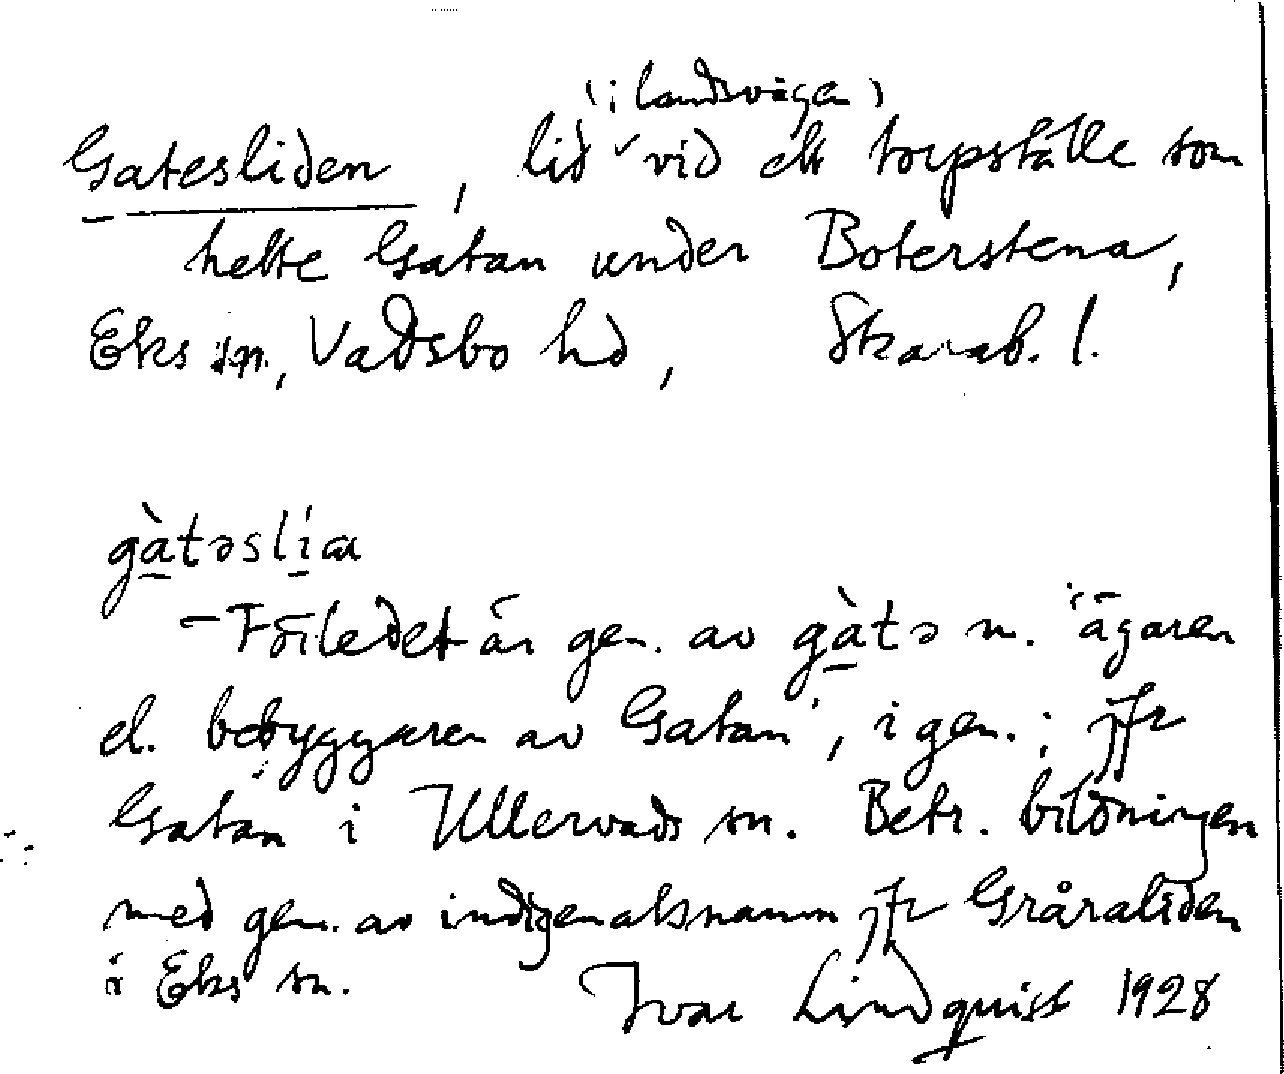 (i landsvägen)
Gatesliden, lid ✓ vid ett torpställe som
hette Gatan under Boterstena,
Eks sn, Vadsbo hd, Skarab. l.
gàtəslíа
– Förledet är gen. av gàtə m. 'ägaren
el. bebyggaren av Gatan', i gen.; jfr
Gatan i Ullervads sn. Betr. bildningen
med gen. av indigenatsnamn jfr Gråraliden
i Eks sn. Ivar Lindquist 1928